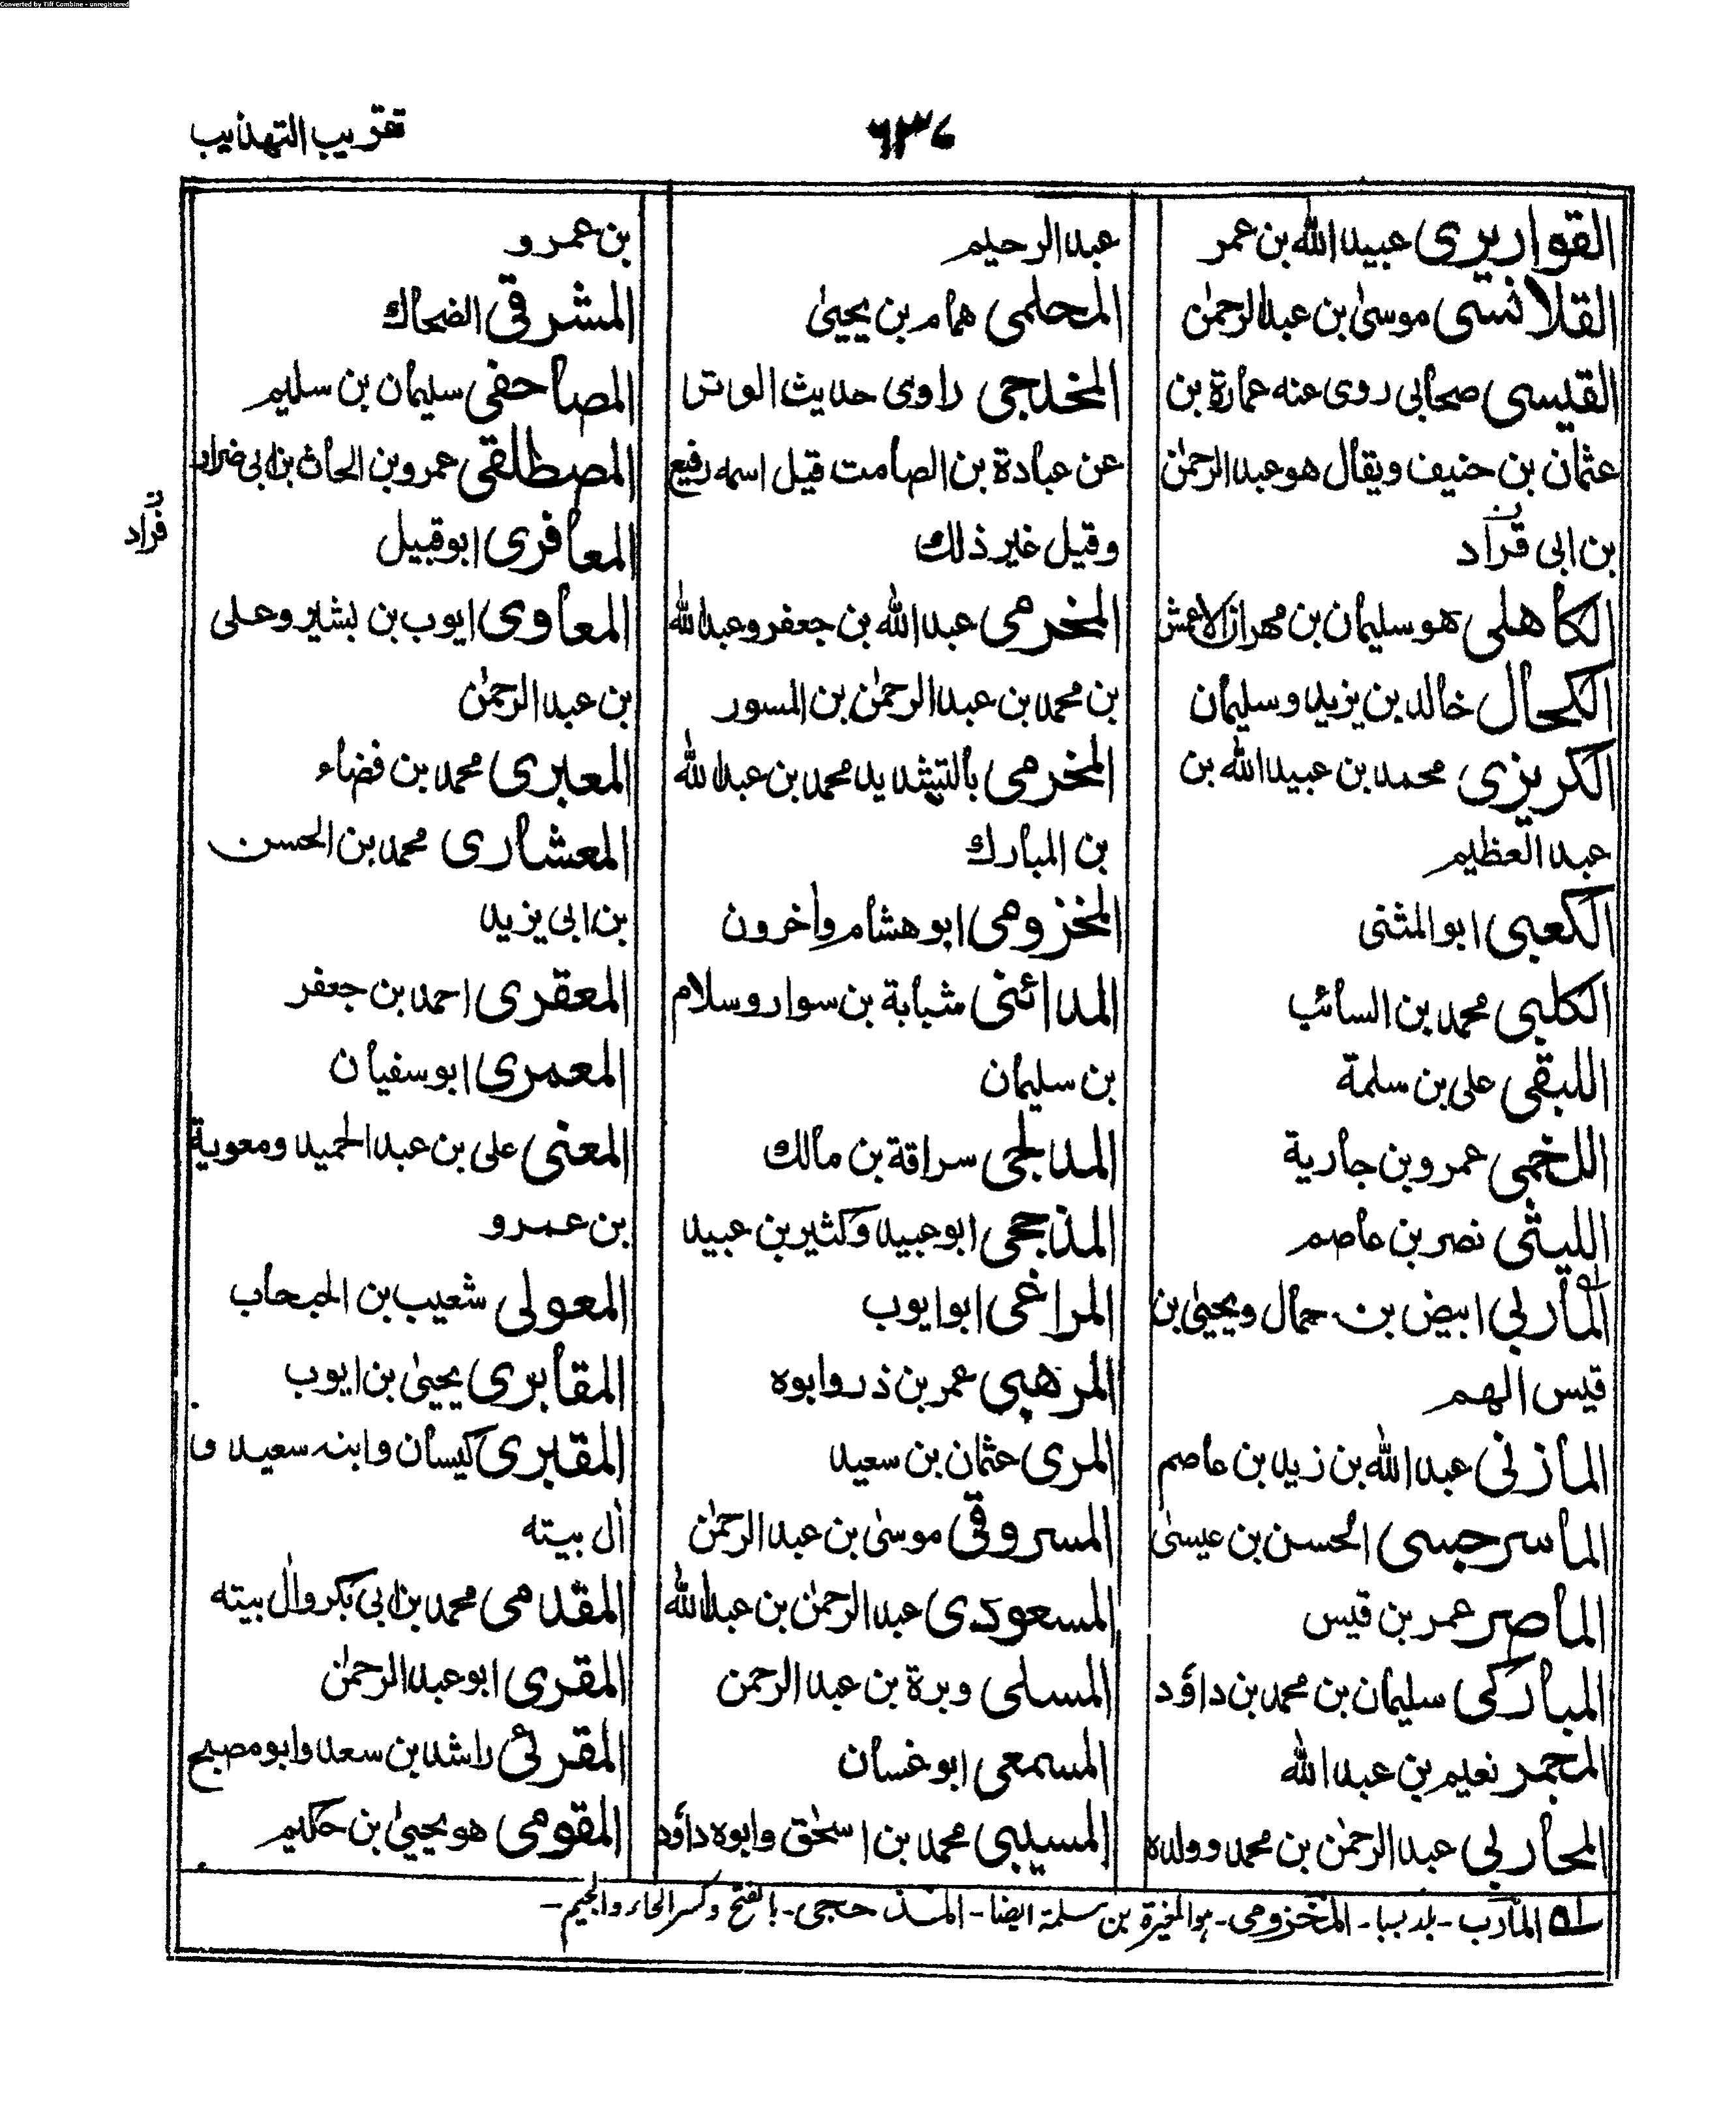 Converted by Tiff Combine - unregistered
تقريب التهذيب
القواريرى عبيد الله بن عمر
القلانسى موسىٰ بن عبد الرحمٰن
القيسى صحابى روى عنه عمارة بن
عثمان بن حنيف ويقال هو عبد الرحمٰن
بن ابى قراد
الكاهلى هو سليمان بن مهران الاعمش
الكحال خالد بن يزيد وسليمان
الكريزى محمد بن عبيد الله بن
عبد العظيم
الكعبى ابو المثنى
الكلبى محمد بن السائب
اللبقى على بن سلمة
اللخمى عمرو بن جارية
الليثى نصر بن عاصم
المأربى ابيض بن حمال ويحيىٰ بن
قيس الهم
المازنى عبد الله بن زيد بن عاصم
الماسرجسى الحسن بن عيسىٰ
الماصر عمر بن قيس
المباركى سليمان بن محمد بن داؤد
المجمر نعيم بن عبد الله
المحاربى عبد الرحمٰن بن محمد وولده
عبد الرحيم
المحلمى همام بن يحيىٰ
المخدجى راوى حديث الوتر
عن عبادة بن الصامت قيل اسمه رفيع
وقيل غير ذلك
المخرمى عبد الله بن جعفر وعبد الله
بن محمد بن عبد الرحمٰن بن المسور
المخرمى بالتشديد محمد بن عبد الله
بن المبارك
المخزومى ابو هشام واٰخرون
المدائنى شبابة بن سوار وسلام
بن سليمان
المدلجى سراقة بن مالك
المذحجى ابو عبيد وكثير بن عبيد
المراغى ابو ايوب
المرهبى عمر بن ذر وابوه
المرى عثمان بن سعيد
المسروقى موسىٰ بن عبد الرحمٰن
المسعودى عبد الرحمٰن بن عبد الله
المسلى وبرة بن عبد الرحمن
المسمعى ابو غسان
المسيبى محمد بن اسحٰق وابوه داؤد
بن عمرو
المشرقى الضحاك
المصاحفى سليمان بن سليم
المصطلقى عمرو بن الحارث بن ابى ضرار
المعافرى ابو قبيل
المعاوى ايوب بن بشير وعلى
بن عبد الرحمٰن
المعبرى محمد بن فضاء
المعشارى محمد بن الحسن
بن ابى يزيد
المعقرى احمد بن جعفر
المعمرى ابو سفيان
المعنى على بن عبد الحميد ومعوية
بن عمرو
المعولى شعيب بن الحبحاب
المقابرى يحيىٰ بن ايوب
المقبرى كيسان وابنه سعيد و
اٰل بيته
المقدمى محمد بن ابى بكر واٰل بيته
المقرى ابو عبد الرحمٰن
المقرئى راشد بن سعد وابو مصبح
المقومى هو يحيىٰ بن حكيم
ن فراد
له المأرب - بلد بسبا - المخزومى - هو المغيرة بن سلمة ايضا - المذحجى - بالفتح وكسر الحاء والجيم -